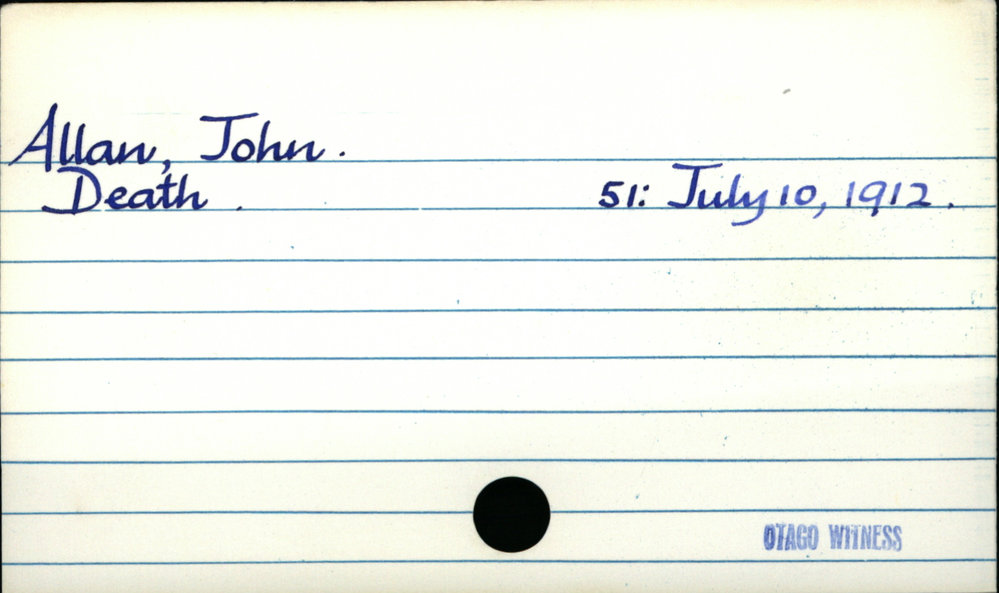 Allan, John.
Death. 51: July 10, 1912.
OTAGO WITNESS